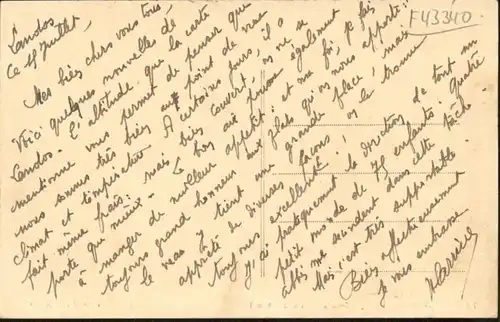 F43340
Landos
Ce 17 Juillet.
Mes bien chers vous tous,
Voici quelques nouvelles de
Landos. L'altitude que la carte
mentionne vous permet de penser que
nous sommes très bien au point de vue
climat et température. A certains jours, il a
fait même frais; mais bien couvert, on ne se
porte que mieux. Le bon air pousse également
à manger de meilleur appétit; et ma foi, je fais
toujours grand honneur aux plats qu'on nous apporte!
le veau y tient une grande place, mais
apprêté de diverses façons on le trouve
toujours excellent!
J'ai pratiquement la direction de tout un
petit monde de 75 enfants. Quatre
abbés me secondent dans cette tâche
Mais c'est très supportable.
Bien affectueusement
Je vous embrasse